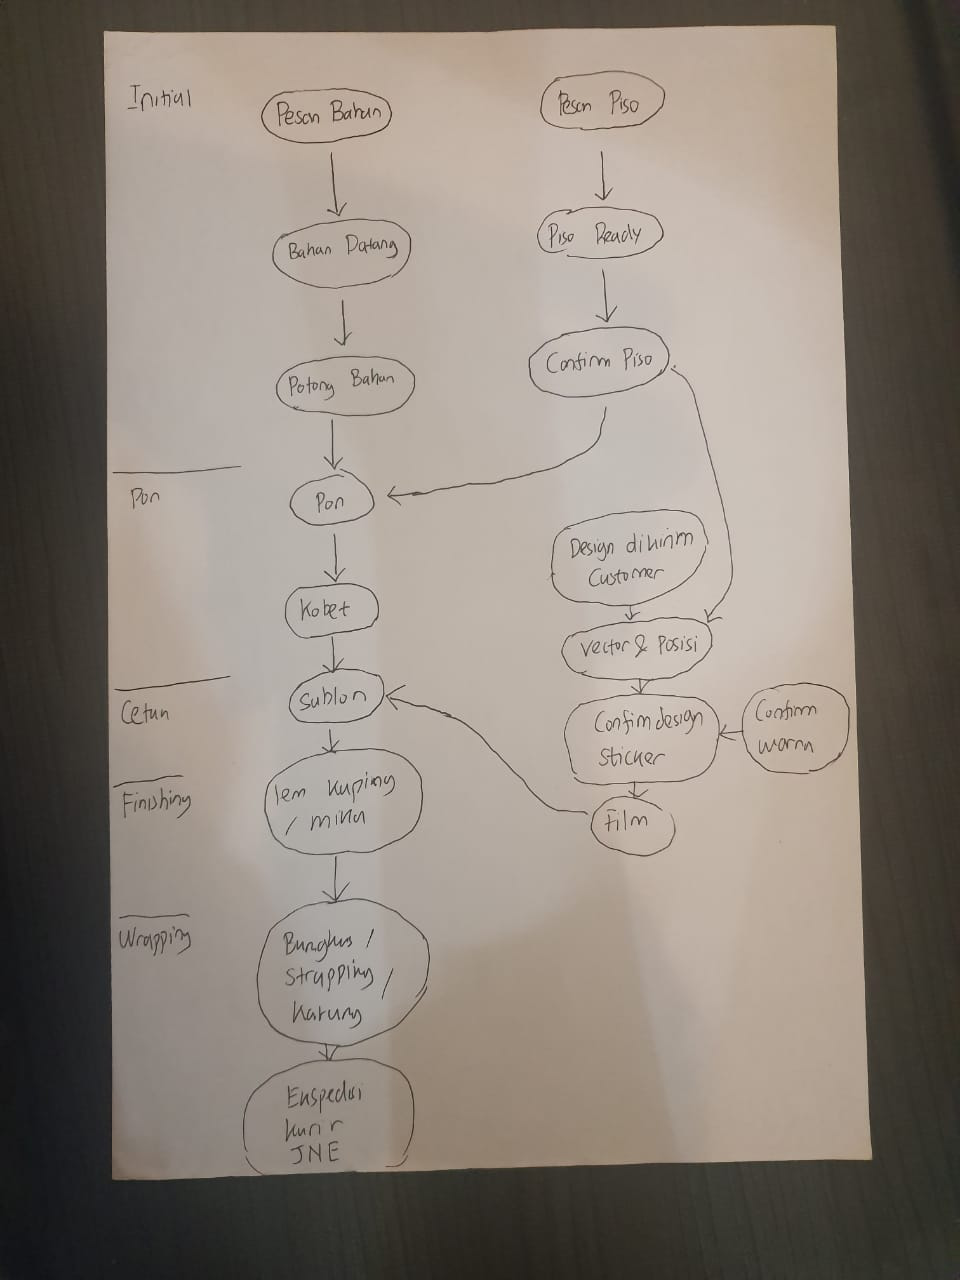 Initial
Pesan Bahan
Pesan Piso
Bahan Datang
Piso Ready
Potong Bahan
Confirm Piso
Pon
Pon
Design dikirim
Customer
Kobet
Vector & Posisi
Cetak
Sablon
Confirm design
Sticker
Confirm
warna
Finishing
lem kuping
/ mika
Film
Wrapping
Bungkus /
Strapping /
Karung
Ekspedisi
kurir
JNE